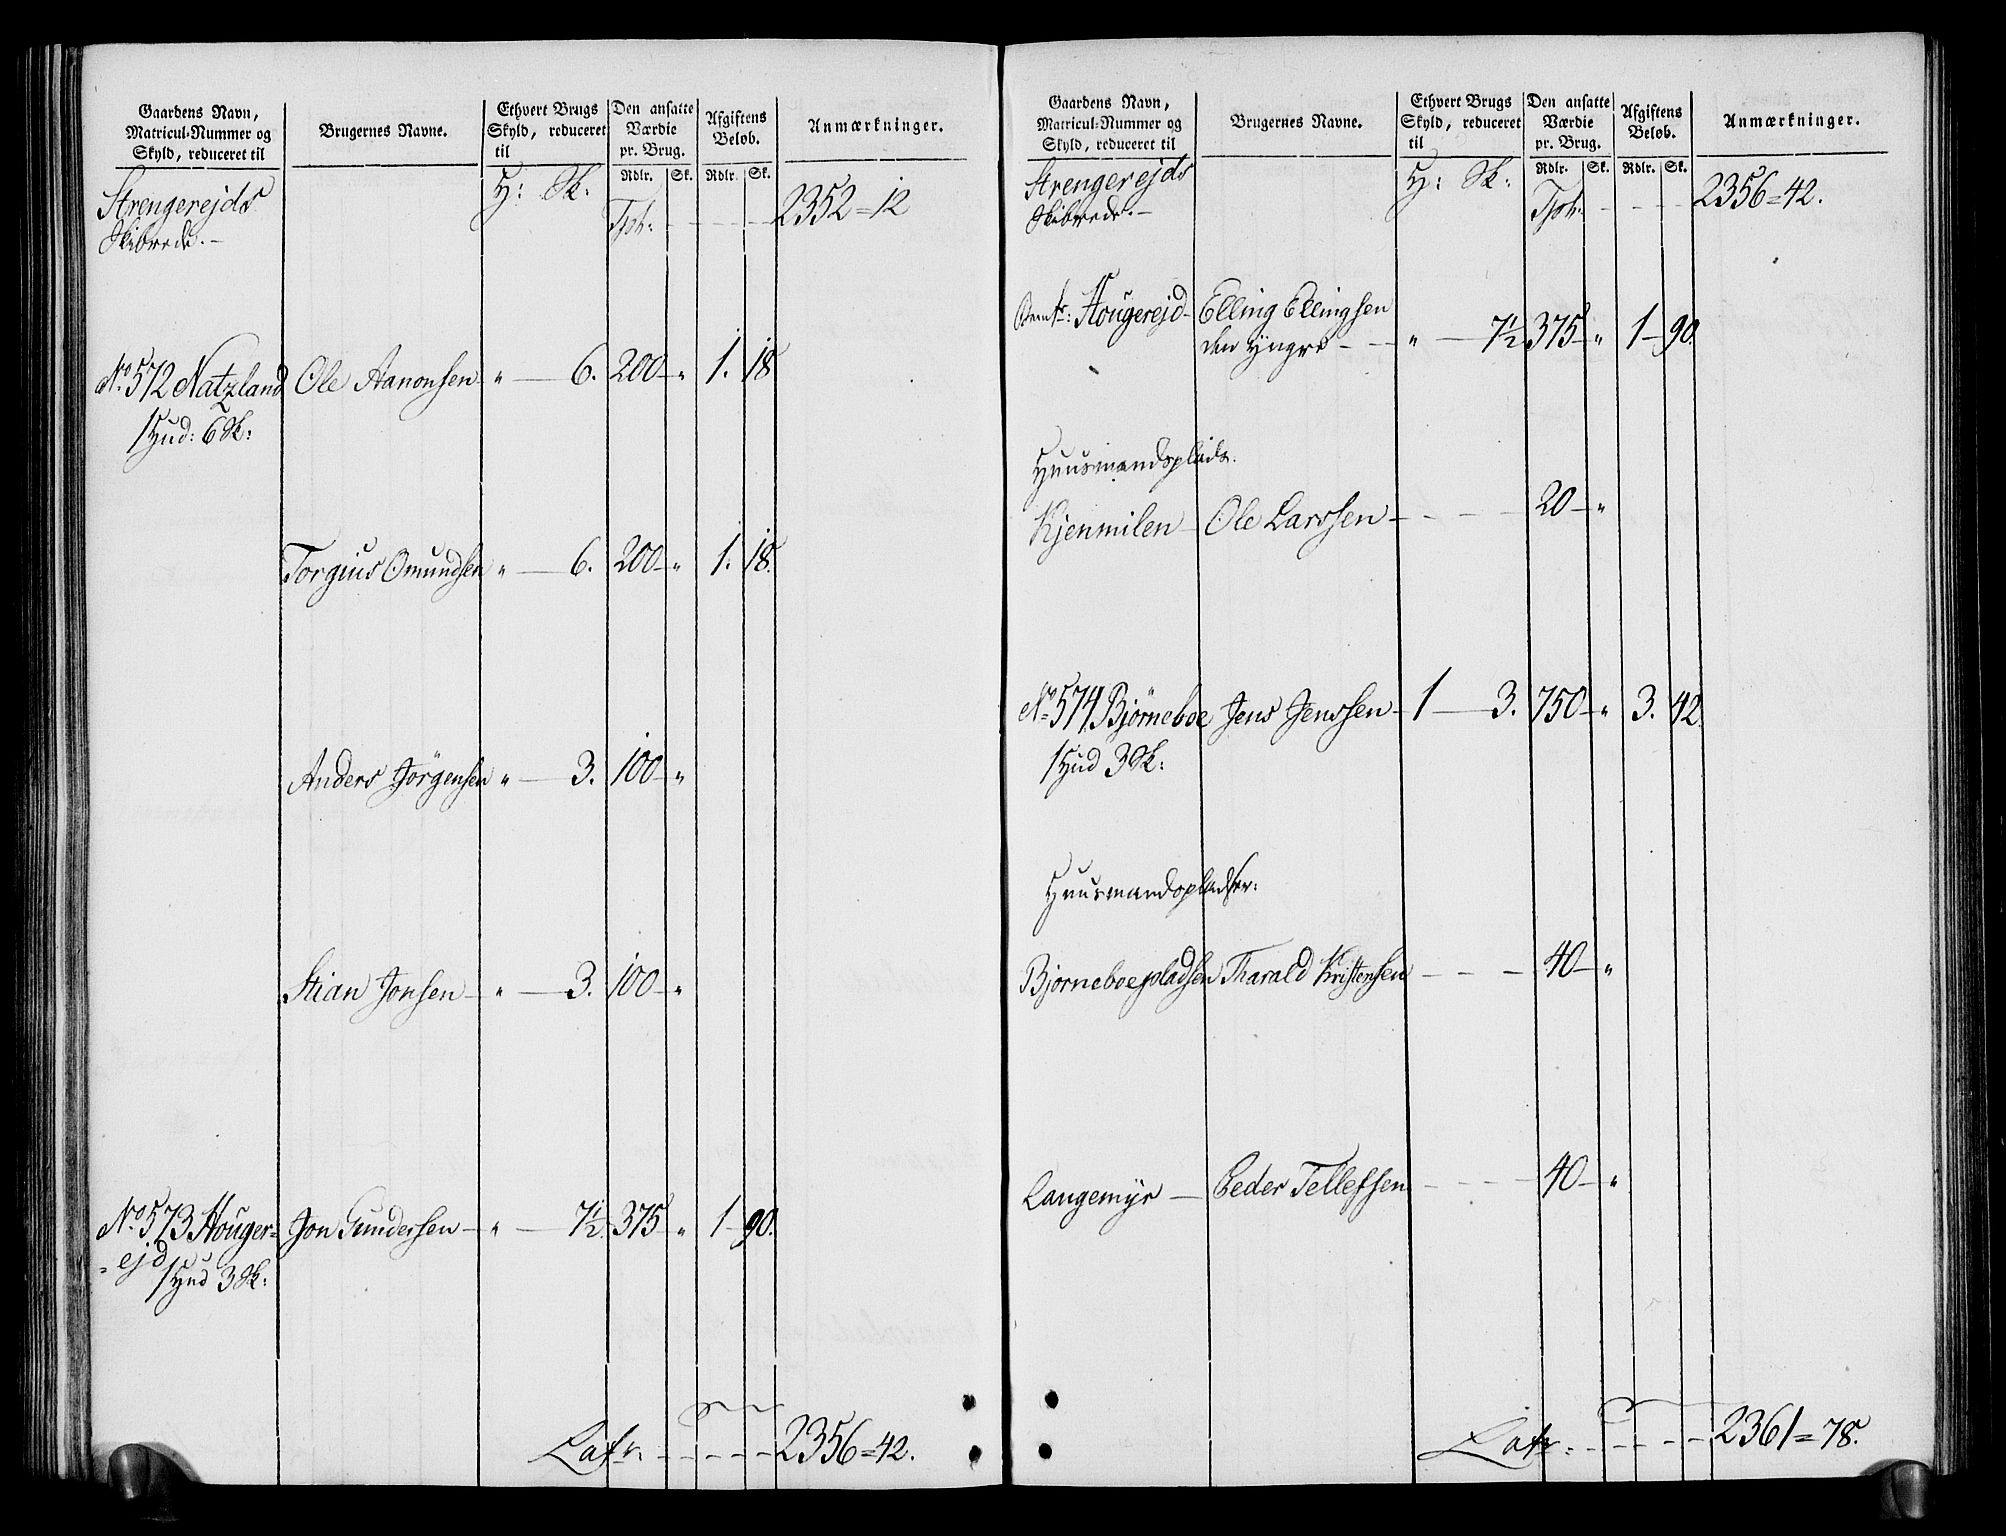 Gaardens Navn,
Matricul-Nummer og
Skyld, reduceret til
Brugernes Navne.
Ethvert Brugs
Skyld, reduceret
til
Den ansatte
Værdie
pr. Brug.
Afgiftens
Beløb.
Anmærkninger.
Rdlr. Sk. Rdlr. Sk.
Strengerejds
Skibrede.-
H: Sk:
Tspt: - - - - 2352=12
No 572 Natzland Ole Aanonsen " - 6. 200 - " 1. 18
1 Hud: 6 Sk:
Torgius Omundsen " - 6. 200 - " 1. 18.
Anders Jørgensen " - 3. 100 - "
Stian Jonsen - " - 3. 100 - "
No 573 Houger= Jon Gundersen - " - 7½ 375 - " 1 - 90.
= ejd
1 Hud 3 Sk:
Latr: - - - - - 2356=42.
Gaardens Navn,
Matricul-Nummer og
Skyld, reduceret til
Brugernes Navne.
Ethvert Brugs
Skyld, reduceret
til
Den ansatte
Værdie
pr. Brug.
Afgiftens
Beløb.
Anmærkninger.
Rdlr. Sk. Rdlr. Sk.
Strengerejds
Skibrede.-
H: Sk:
Tspt: - - - - 2356=42.
Hougerejd - Elling Ellingsen
den Yngre - - " - 7½ 375 - " 1 - 90
Huusmandsplads.
Kjenmilen - Ole Larssen - - - - 20 - "
No 574 Bjørneboe Jens Jenssen - 1 - 3. 750 - " 3. 42
1 Hud 3 Sk:
Huusmandspladser:
Bjørneboepladsen Tharald Kristensen - - - 40 - "
Langemyr - Peder Tellefsen - - - - 40 - "
Latr: - - - - - 2361=78.